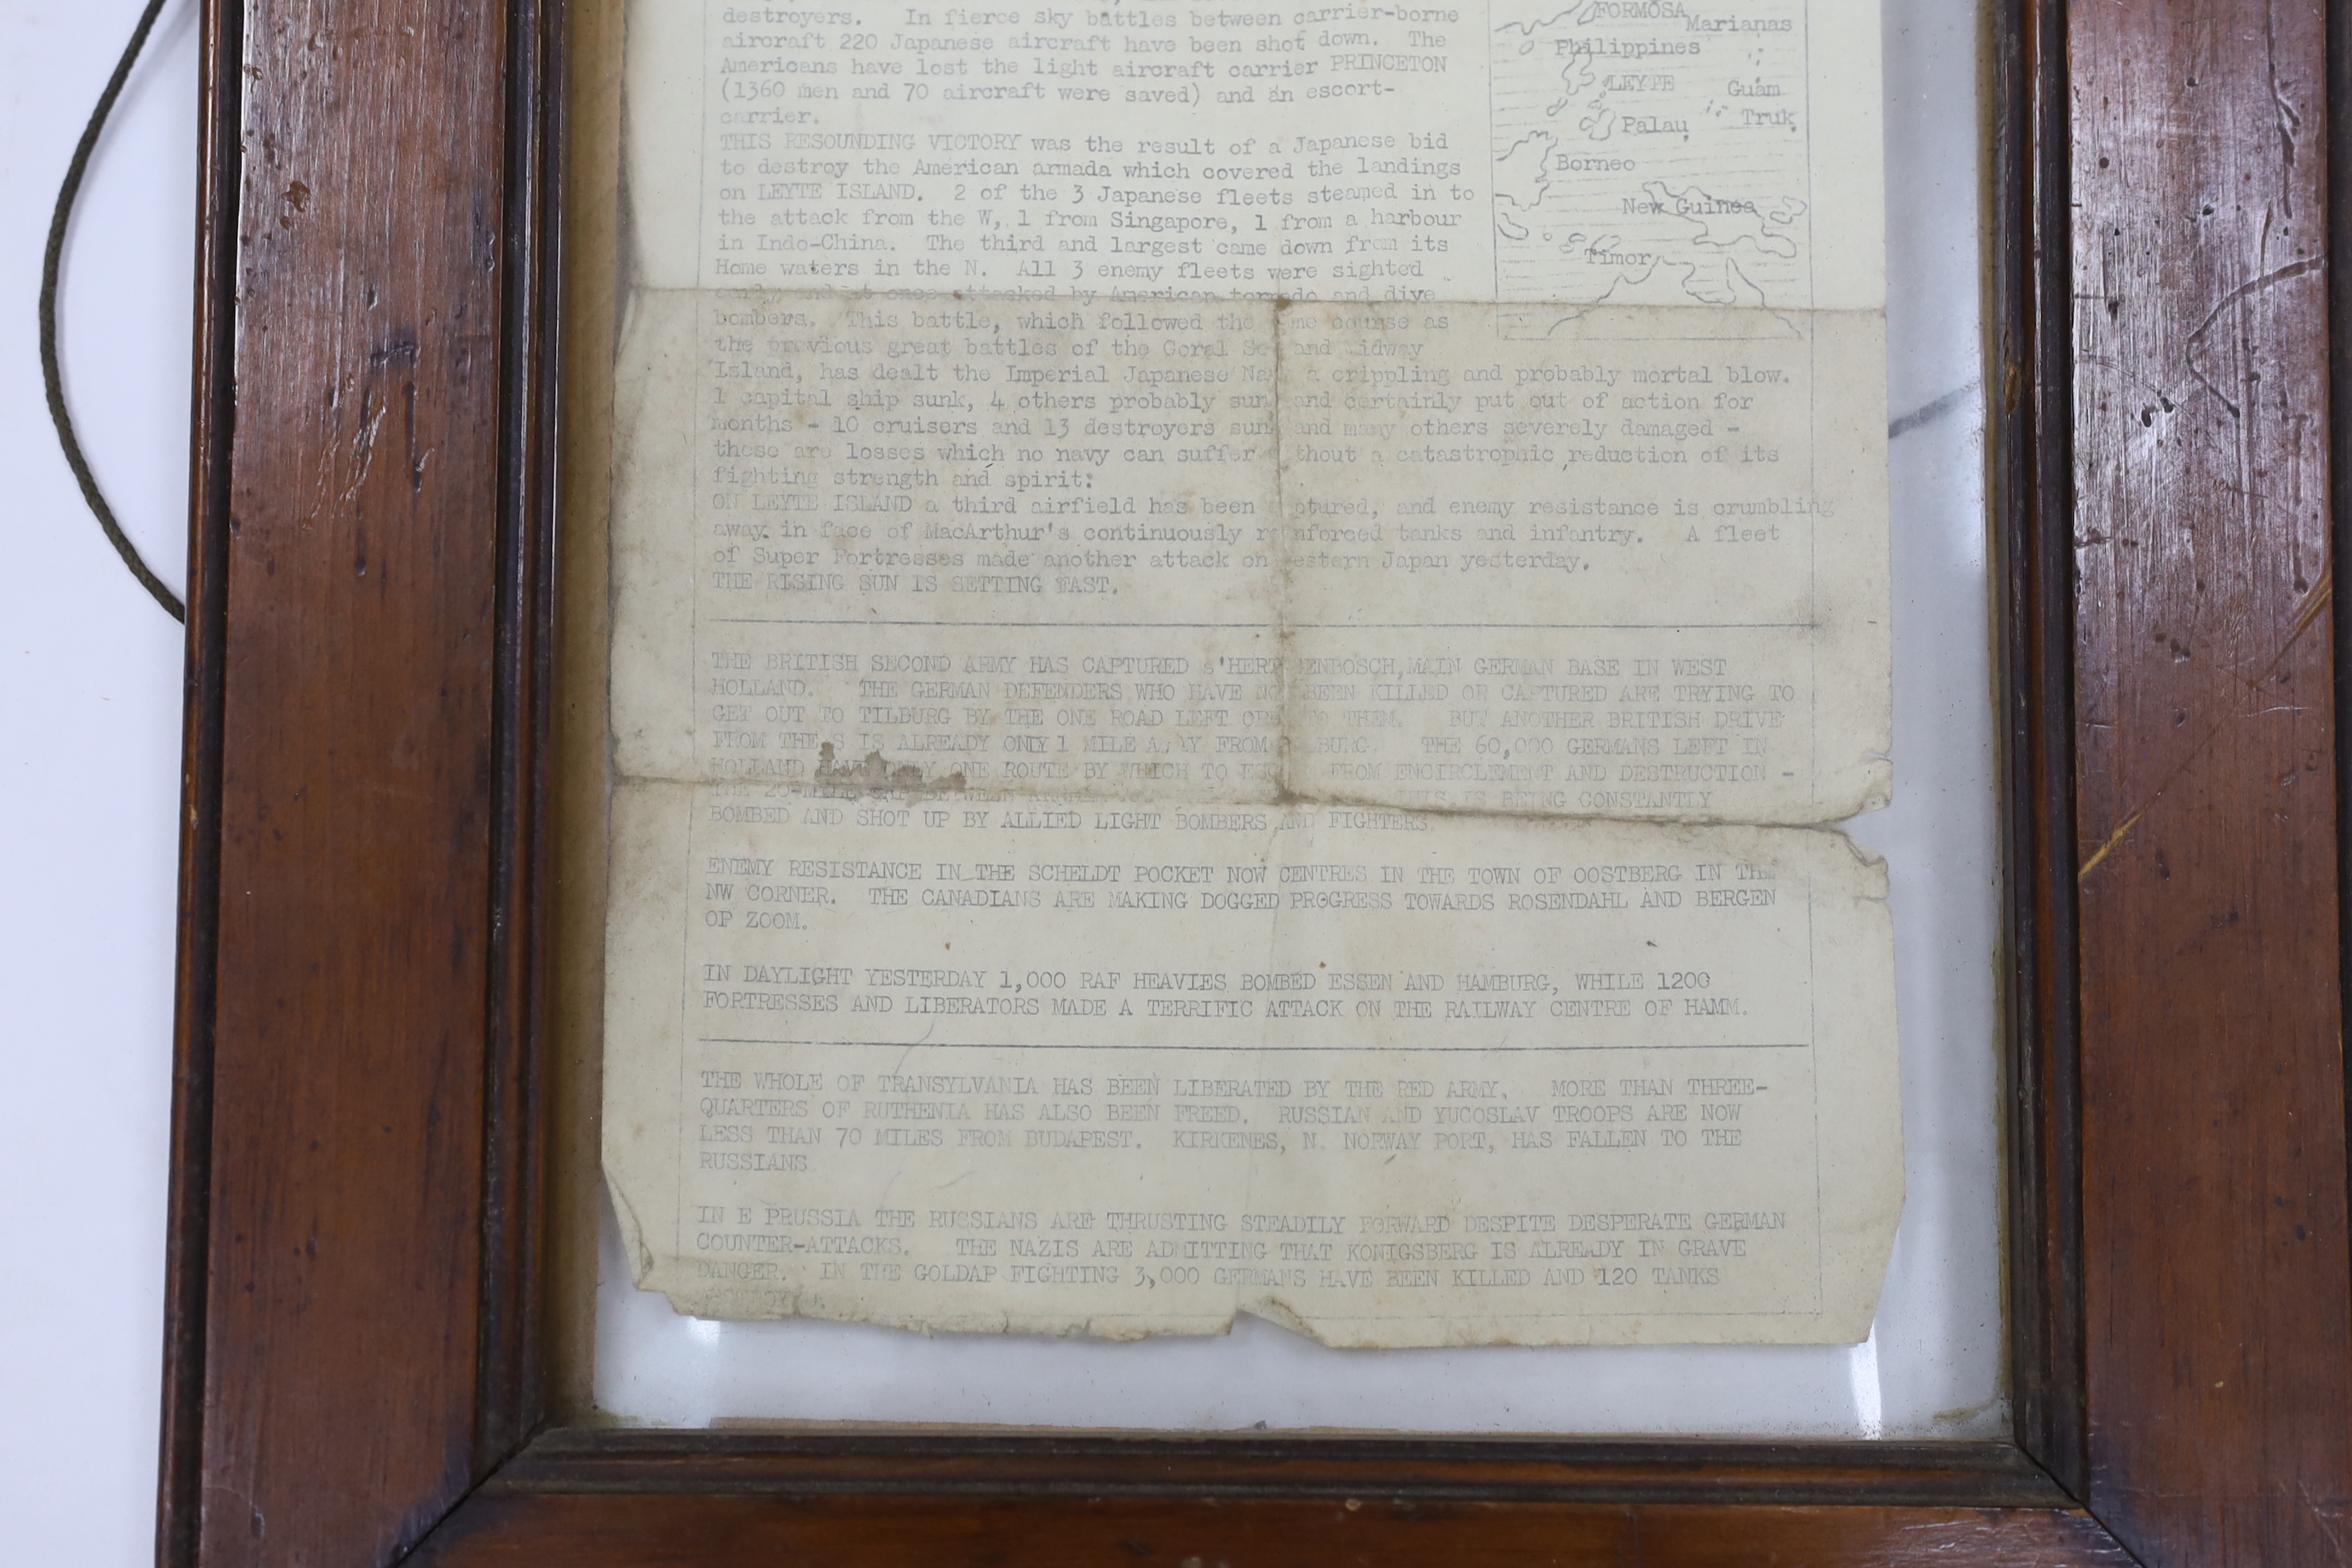 destroyers. In fierce sky battles between carrier-borne
aircraft 220 Japanese aircraft have been shot down. The
Americans have lost the light aircraft carrier PRINCETON
(1360 men and 70 aircraft were saved) and an escort-
carrier.
THIS RESOUNDING VICTORY was the result of a Japanese bid
to destroy the American armada which covered the landings
on LEYTE ISLAND. 2 of the 3 Japanese fleets steamed in to
the attack from the W, 1 from Singapore, 1 from a harbour
in Indo-China. The third and largest came down from its
Home waters in the N. All 3 enemy fleets were sighted
early, and at once attacked by American torpedo and dive
bombers. This battle, which followed the same course as
the previous great battles of the Coral Sea and Midway
Island, has dealt the Imperial Japanese Navy a crippling and probably mortal blow.
1 capital ship sunk, 4 others probably sunk and certainly put out of action for
months - 10 cruisers and 13 destroyers sunk and many others severely damaged -
these are losses which no navy can suffer without a catastrophic reduction of its
fighting strength and spirit:
ON LEYTE ISLAND a third airfield has been captured, and enemy resistance is crumbling
away in face of MacArthur's continuously reinforced tanks and infantry. A fleet
of Super Fortresses made another attack on Western Japan yesterday.
THE RISING SUN IS SETTING FAST.
FORMOSA
Marianas
Philippines
LEYTE
Guam
Palau
Truk
Borneo
New Guinea
Timor
THE BRITISH SECOND ARMY HAS CAPTURED s'HERTOGENBOSCH, MAIN GERMAN BASE IN WEST
HOLLAND. THE GERMAN DEFENDERS WHO HAVE NOT BEEN KILLED OR CAPTURED ARE TRYING TO
GET OUT TO TILBURG BY THE ONE ROAD LEFT OPEN TO THEM. BUT ANOTHER BRITISH DRIVE
FROM THE S IS ALREADY ONLY 1 MILE AWAY FROM TILBURG. THE 60,000 GERMANS LEFT IN
HOLLAND HAVE ONLY ONE ROUTE BY WHICH TO ESCAPE FROM ENCIRCLEMENT AND DESTRUCTION -
THE 20-MILE GAP BETWEEN THIS IS BEING CONSTANTLY
BOMBED AND SHOT UP BY ALLIED LIGHT BOMBERS AND FIGHTERS.
ENEMY RESISTANCE IN THE SCHELDT POCKET NOW CENTRES IN THE TOWN OF OOSTBERG IN THE
NW CORNER. THE CANADIANS ARE MAKING DOGGED PROGRESS TOWARDS ROSENDAHL AND BERGEN
OF ZOOM.
IN DAYLIGHT YESTERDAY 1,000 RAF HEAVIES BOMBED ESSEN AND HAMBURG, WHILE 1200
FORTRESSES AND LIBERATORS MADE A TERRIFIC ATTACK ON THE RAILWAY CENTRE OF HAMM.
THE WHOLE OF TRANSYLVANIA HAS BEEN LIBERATED BY THE RED ARMY. MORE THAN THREE-
QUARTERS OF RUTHENIA HAS ALSO BEEN FREED. RUSSIAN AND YUGOSLAV TROOPS ARE NOW
LESS THAN 70 MILES FROM BUDAPEST. KIRKENES, N. NORWAY PORT, HAS FALLEN TO THE
RUSSIANS
IN E PRUSSIA THE RUSSIANS ARE THRUSTING STEADILY FORWARD DESPITE DESPERATE GERMAN
COUNTER-ATTACKS. THE NAZIS ARE ADMITTING THAT KONIGSBERG IS ALREADY IN GRAVE
DANGER. IN THE GOLDAP FIGHTING 3,000 GERMANS HAVE BEEN KILLED AND 120 TANKS